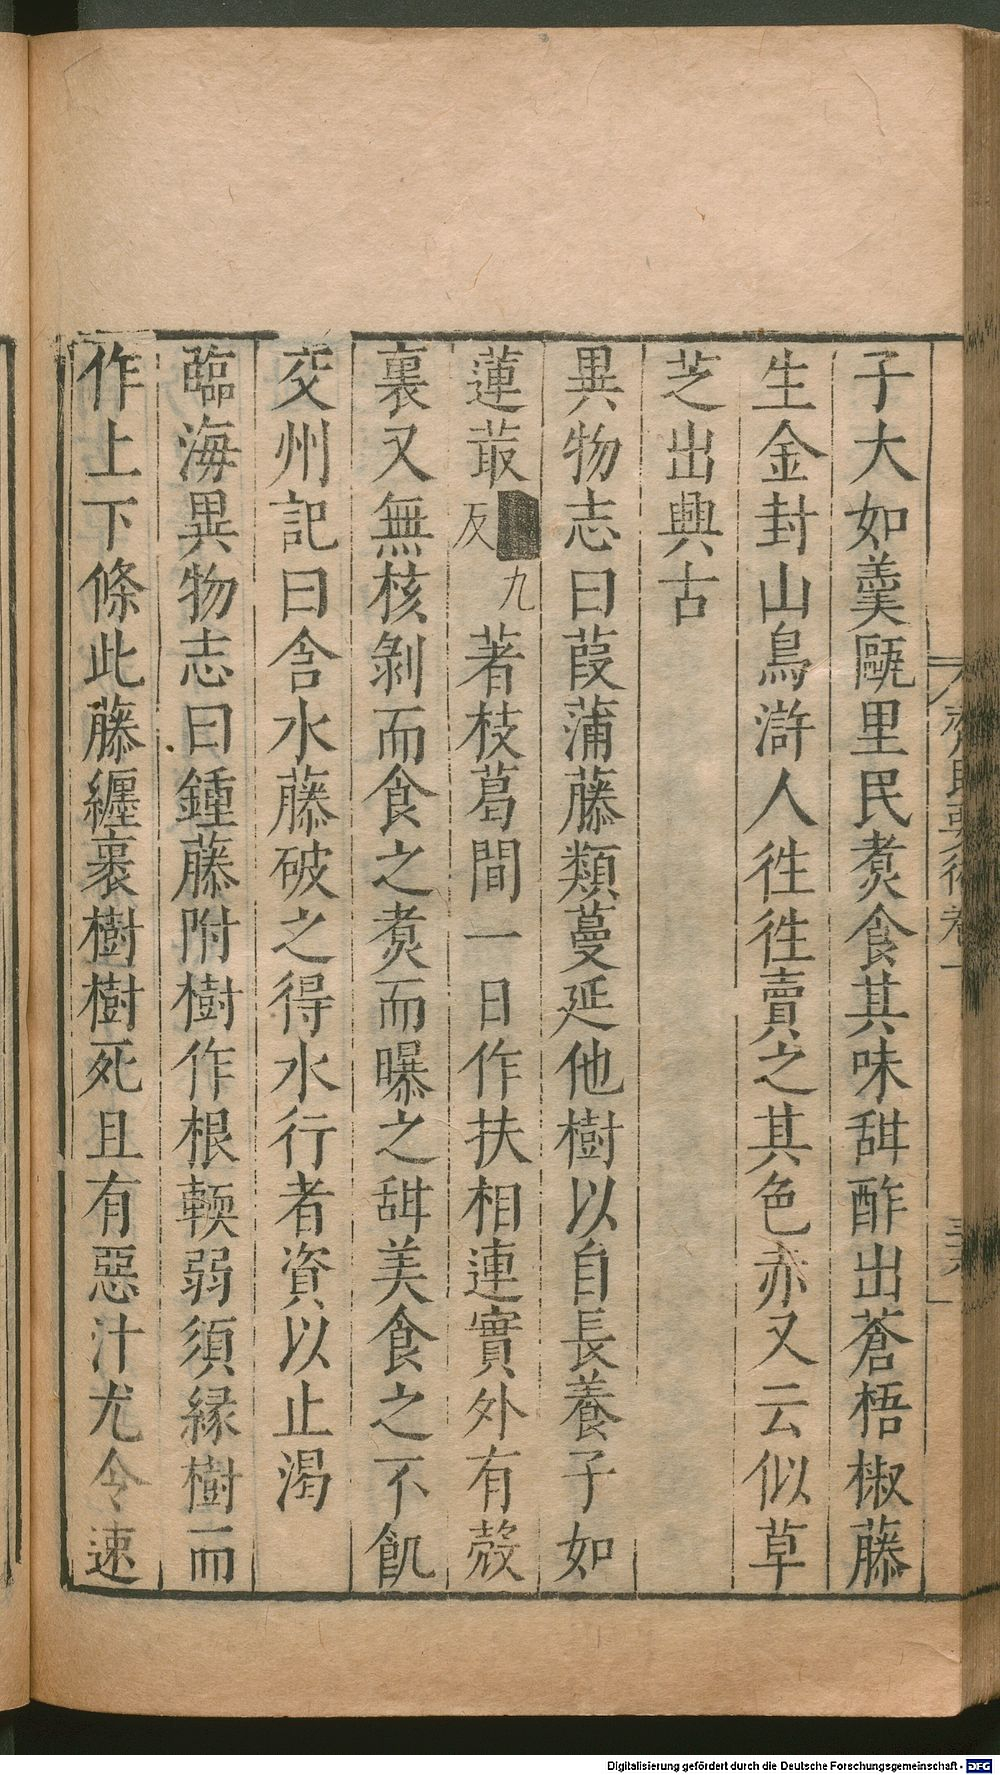 子大如羹甌里民煑食其味甜酢出蒼梧椒藤
生金封山烏滸人徃徃賣之其色赤又云似草
芝出興古
異物志曰葭蒲藤類蔓延他樹以自長養子如
蓮菆九反著枝葛間一日作扶相連實外有殼
裏又無核剝而食之煑而曝之甜美食之不飢
交州記曰含水藤破之得水行者資以止渴
臨海異物志曰鍾藤附樹作根輭弱須緣樹而
作上下條此藤纏裹樹樹死且有惡汁尤令速
Digitalisierung gefördert durch die Deutsche Forschungsgemeinschaft - DFG